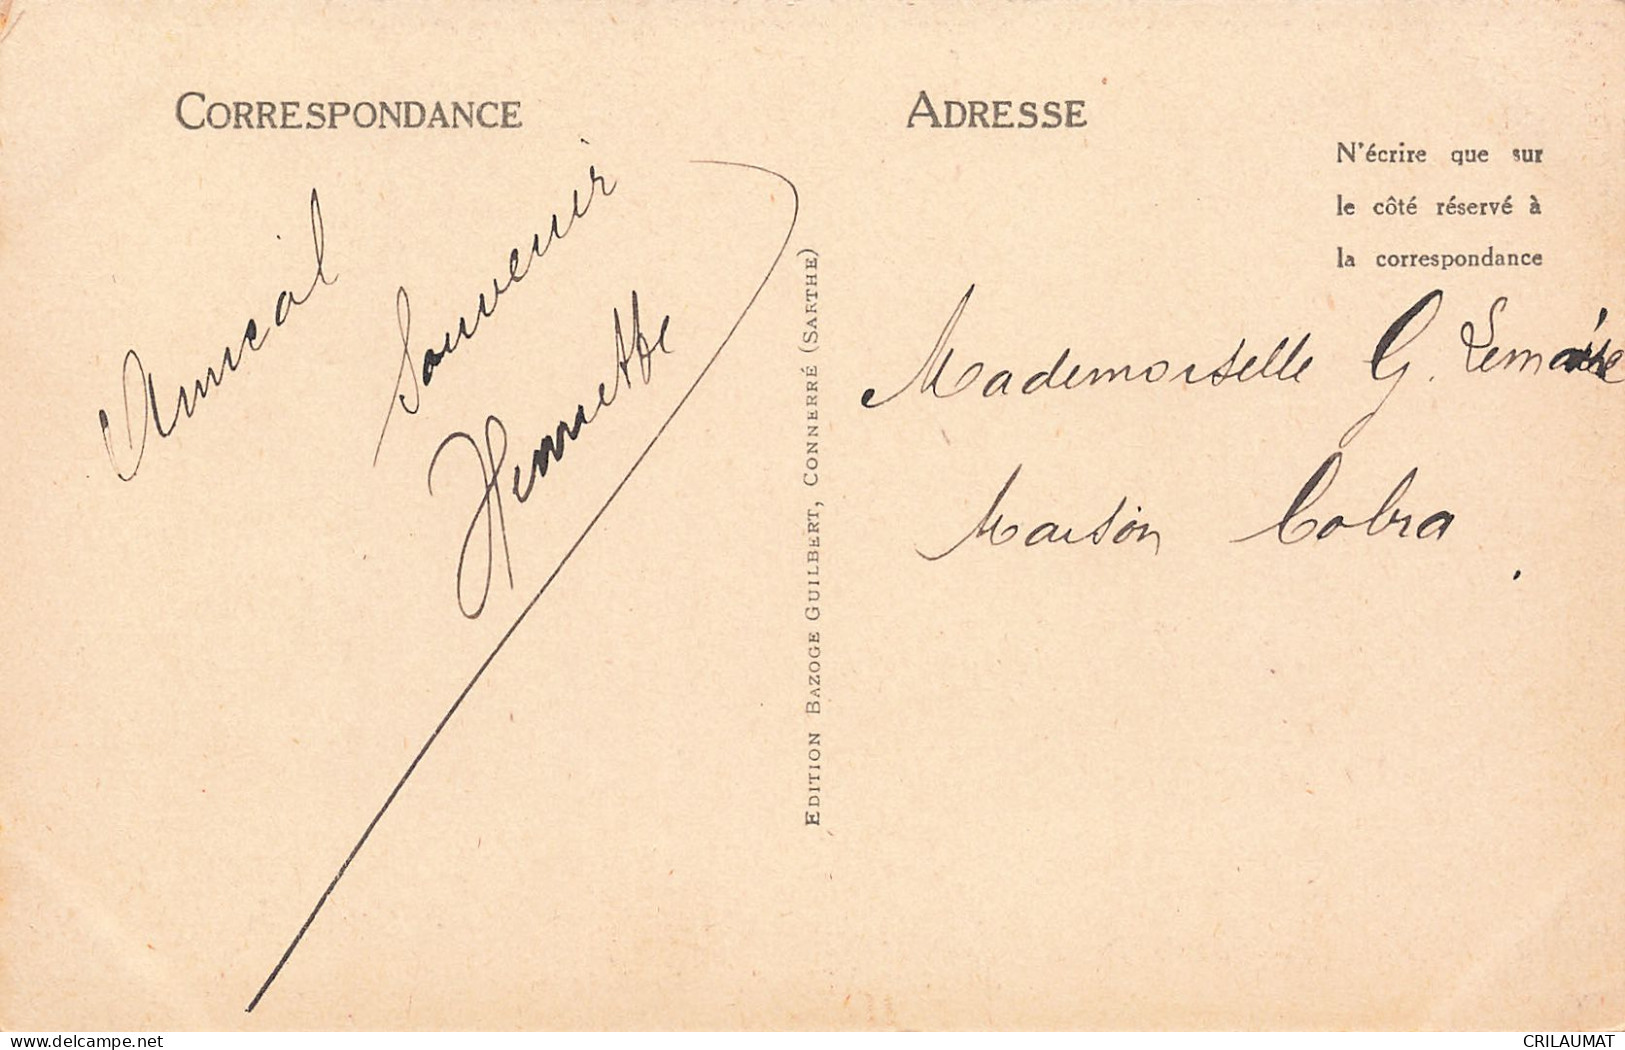 CORRESPONDANCE
Amical
Souvenir
Henriette
EDITION BAZOGE GUILBERT, CONNERRÉ (SARTHE)
ADRESSE
N'écrire que sur
le côté réservé à
la correspondance
Mademoiselle G. Lemaire
Maison Cobra
delcampe.net
CRILAUMAT